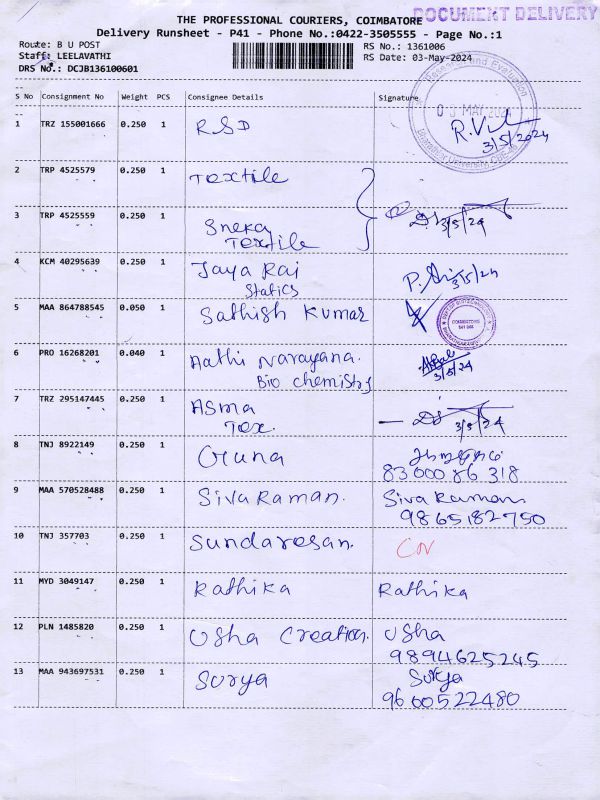 THE PROFESSIONAL COURIERS, COIMBATORE
DOCUMENT DELIVERY
Delivery Runsheet - P41 - Phone No.:0422-3505555 - Page No.:1
Route: B U POST
RS No.: 1361006
Staff: LEELAVATHI
RS Date: 03-May-2024
DRS No.: DCJB136100601
S No Consignment No Weight PCS Consignee Details Signature
03 MAY 2024
1 TRZ 155001666 0.250 1 RSD
3/5/2024
2 TRP 4525579 0.250 1 Textile
3 TRP 4525559 0.250 1 Sneka
Textile
3/5/24
4 KCM 40295639 0.250 1 Jaya Raj
Statics
3/5/24
5 MAA 864788545 0.050 1 Sathish Kumar
COIMBATORE
6 PRO 16268201 0.040 1 Aathi Narayana.
Bio chemistry
3/5/24
7 TRZ 295147445 0.250 1 Asma
Tex.
3/5/24
8 TNJ 8922149 0.250 1 Guna
83000 86 318
9 MAA 570528488 0.250 1 Sivaraman. Sivaraman
9865182750
10 TNJ 357703 0.250 1 Sundaresan.
11 MYD 3049147 0.250 1 Rathika Rathika
12 PLN 1485820 0.250 1 Usha Creation. Usha
9894625245
13 MAA 943697531 0.250 1 Surya Surya
9600522480